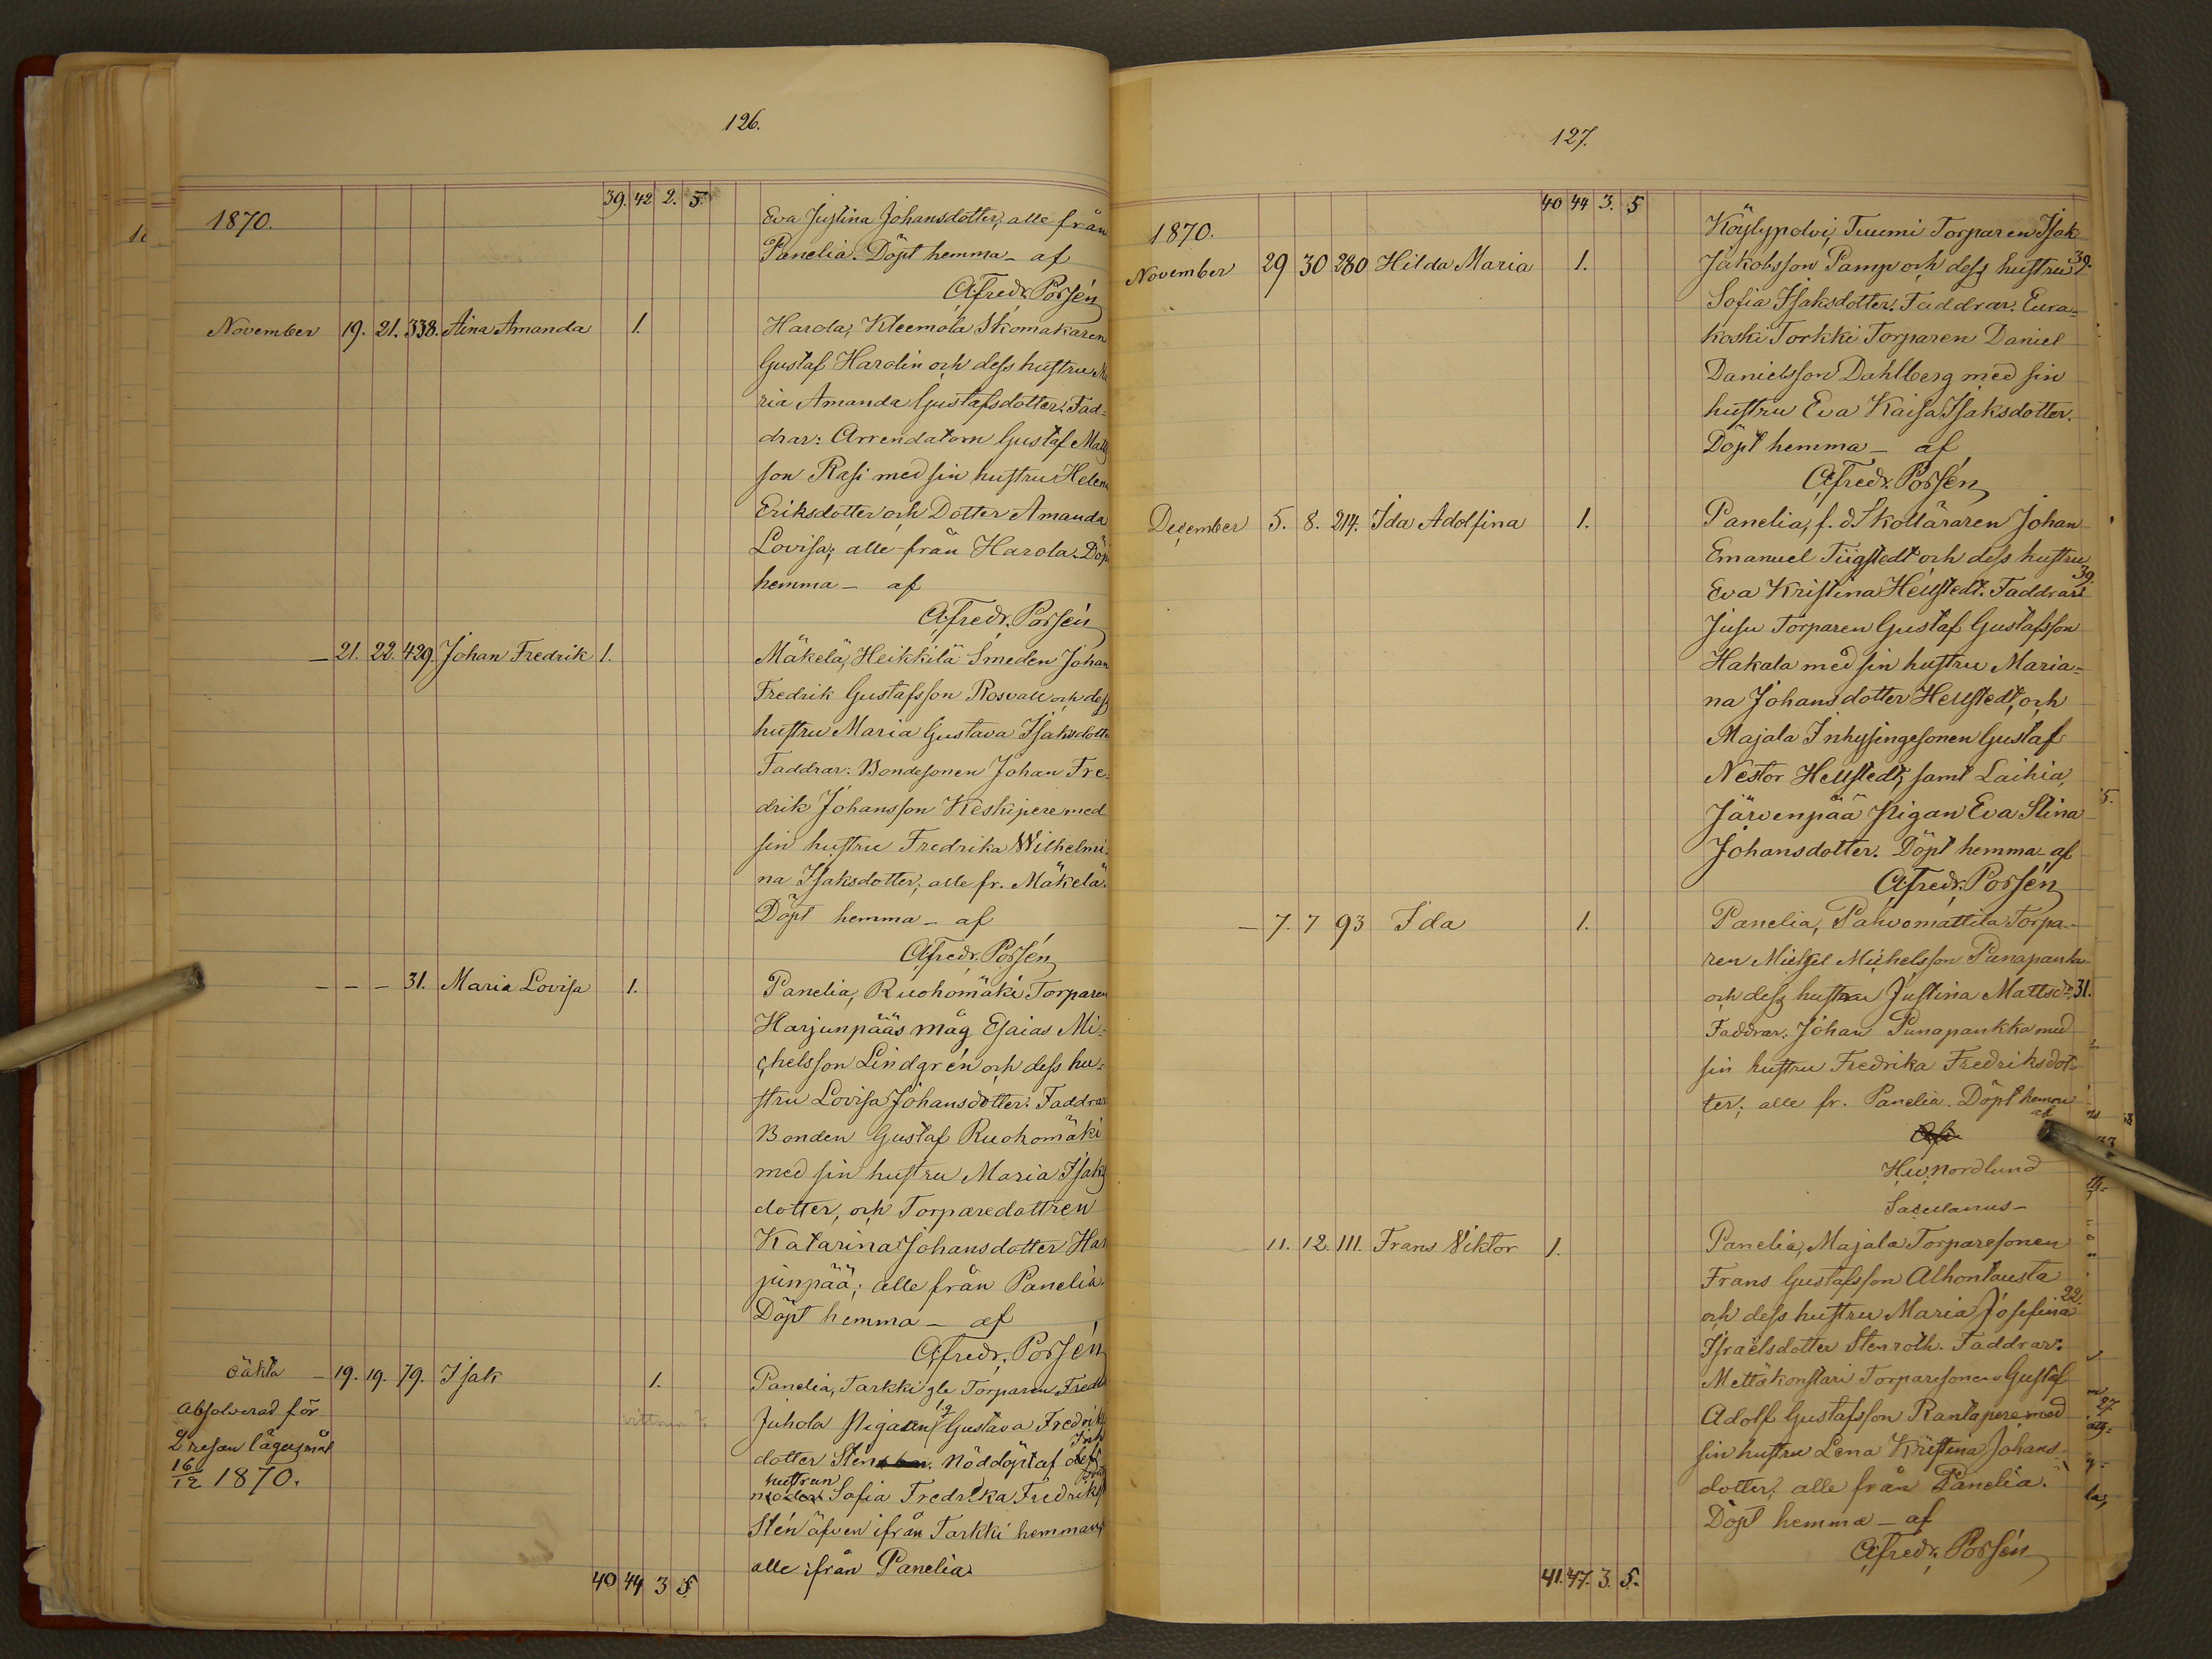 126.
39. 42 2. 5.
1870.
Eva Justina Johansdotter; alle från
Panelia. Döpt hemma – af
A Fredr. Porsén
November 19. 21. 338. Aina Amanda 1. Harola, Kleemola Skomakaren
Gustaf Harolin och dess hustru Ma
ria Amanda Gustafsdotter. Fad-
drar: Arrendatorn Gustaf Matts
son Rasi med sin hustru Helena
Eriksdotter och Dotter Amanda
Lovisa; alle från Harola. Döpt
hemma – af
A Fredr. Porsén
– 21. 22. 429. Johan Fredrik 1. Mäkelä, Heikkilä Smeden Johan
Fredrik Gustafsson Rosvall och dess
hustru Maria Gustava Isaksdotter
Faddrar: Bondesonen Johan Fre-
drik Johansson Keskipere med
sin hustru Fredrika Wilhelmi-
na Isaksdotter; alle fr. Mäkelä.
Döpt hemma – af
A Fredr. Porsén
– – – 31. Maria Lovisa 1. Panelia, Ruohomäki Torparen
Harjunpääs måg Esaias Mi-
chelsson Lindgrén och dess hu-
stru Lovisa Johansdotter. Faddrar
Bonden Gustaf Ruohomäki
med sin hustru Maria Isaks
dotter, och Torparedottren
Katarina Johansdotter Har
junpää; alle från Panelia.
Döpt hemma – af
A Fredr. Porsén
oäkta – 19. 19. 79. Isak 1. Panelia, Tarkki gle Torparen Fredr
Absolverad för
2 resan lägersmål
16/12 1870.
Juhola Pigan Gustava Fredriks
dotter Sten. Nöddöpt af dess
hustrun
moder Sofia Fredrika Fredriks
Stén äfven ifrån Tarkki hemman;
alle ifrån Panelia.
40 44 3 5
127.
40 44 3. 5
1870.
Köylypolvi, Tuumi Torparen Isak
November 29 30 280 Hilda Maria 1. Jakobsson Pamp och dess hustru 39.
Sofia Isaksdotter. Faddrar. Eura-
koski Torkki Torparen Daniel
Danielsson Dahlberg med sin
hustru Eva Kaisa Isaksdotter.
Döpt hemma – af
A Fredr. Porsén
December 5. 8. 214. Ida Adolfina 1. Panelia, f. d Skolläraren Johan
Emanuel Tiigstedt och dess hustru
39.
Eva Kristina Hellstedt. Faddrar:
Jusu Torparen Gustaf Gustafsson
Hakala med sin hustru Maria-
na Johansdotter Hellstedt, och
Majala Inhysingesonen Gustaf
Nestor Hellstedt, samt Laihia,
Järvenpää Pigan Eva Stina
Johansdotter. Döpt hemma – af
A Fredr. Porsén
– 7. 7 93 Ida 1. Panelia, Pahvomattila Torpa-
ren Michel Michelsson Punapankka
och dess hustru Justina Mattsdr 31.
Faddrar: Johan Punapankka med
sin hustru Fredrika Fredriksdot-
ter; alle fr. Panelia. Döpt hemma
af
Hw. Nordlund
Sacellanus –
11. 12. 111. Frans Viktor 1. Panelia, Majala Torparesonen
Frans Gustafsson Alhontausta
22.
och dess hustru Maria Josefina
Israelsdotter Stenroth. Faddrar:
Mettäkonstari Torparesonen Gustaf
Adolf Gustafsson Rantapere med
sin hustru Lena Kristina Johans-
dotter; alle från Panelia.
Döpt hemma – af
A Fredr. Porsén
41. 47. 3. 5.